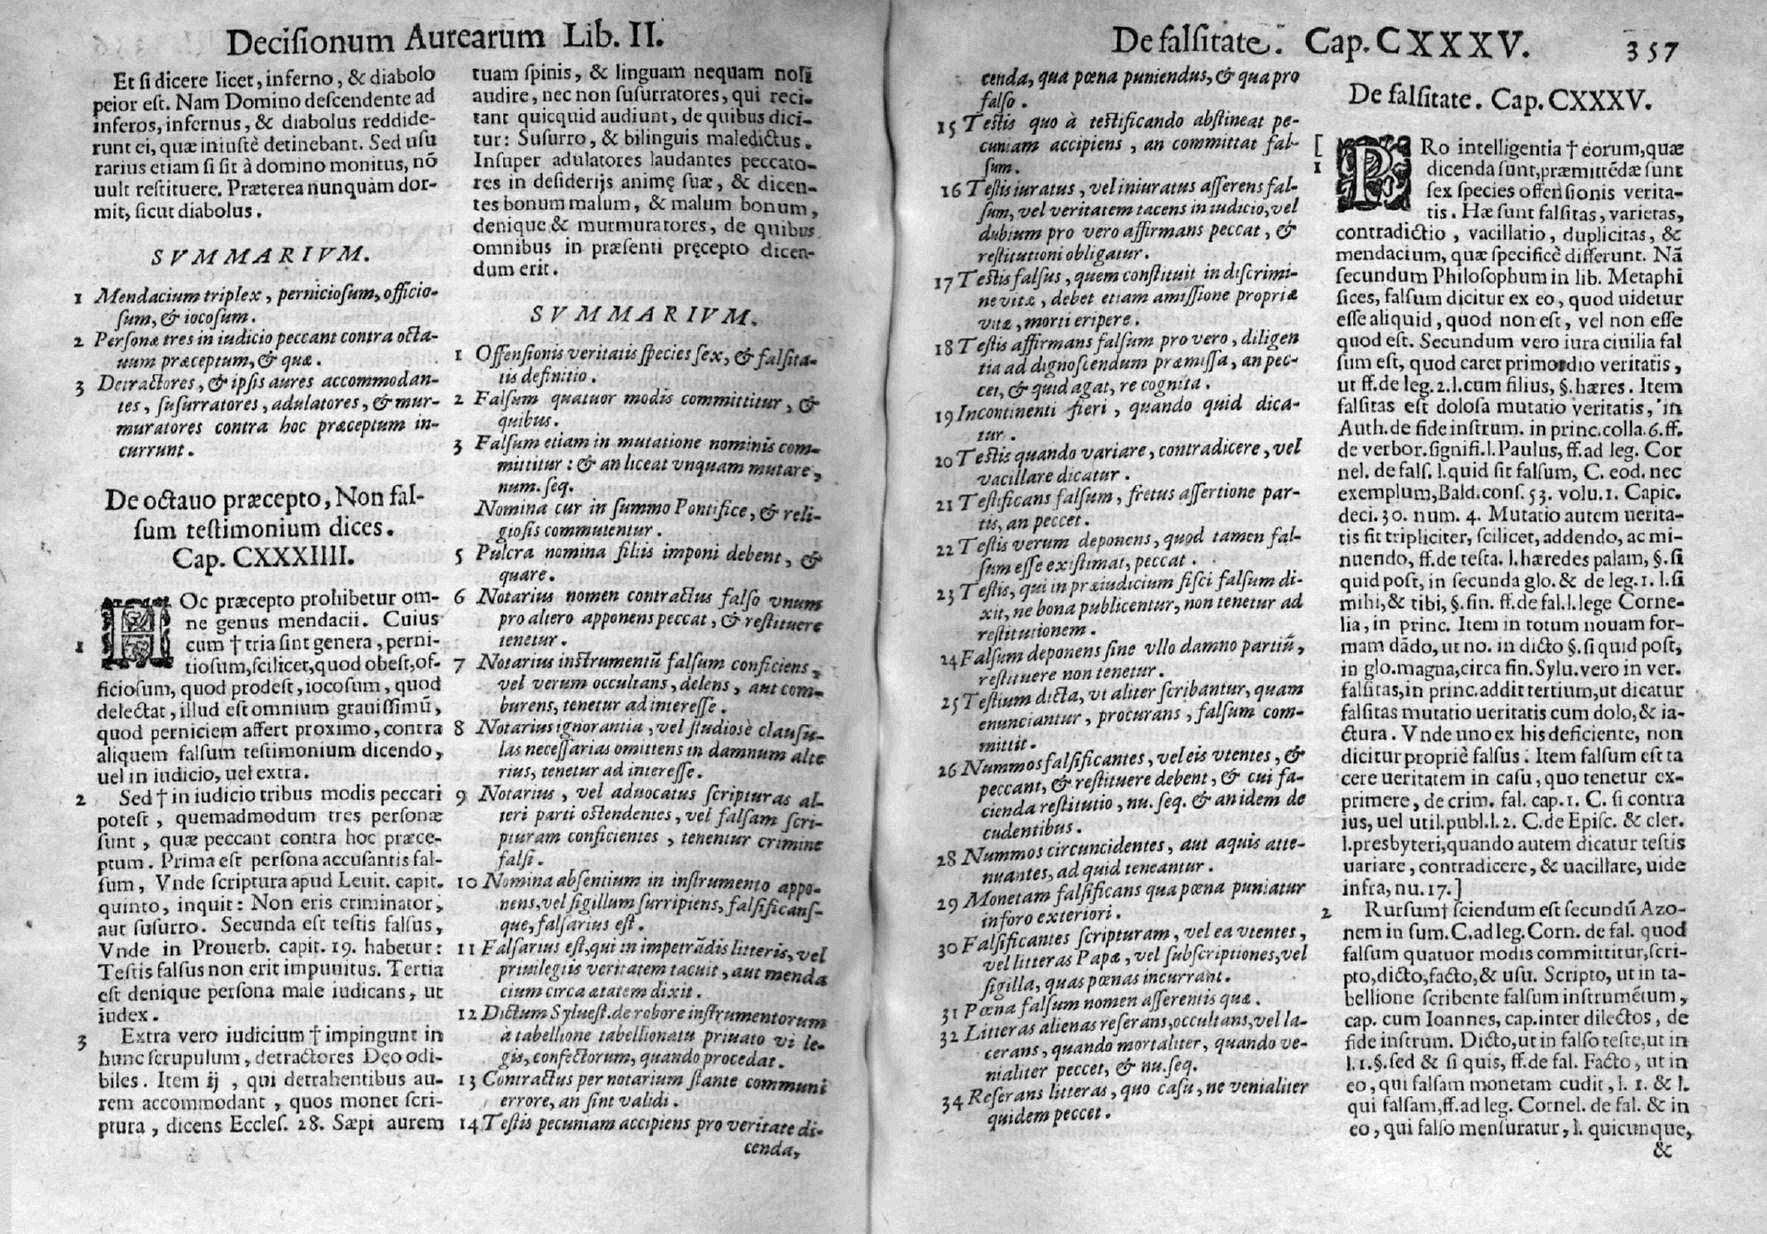 Decisionum Aurearum Lib. II.
Et si dicere licet, inferno, & diabolo
peior est. Nam Domino descendente ad
inferos, infernus, & diabolus reddide-
runt ei, quæ iniustè detinebant. Sed usu
rarius etiam si sit à domino monitus, nō
uult restituere. Præterea nunquàm dor-
mit, sicut diabolus.
SVMMARIVM.
1 Mendacium triplex, perniciosum, officio-
sum, & iocosum.
2 Personæ tres in iudicio peccant contra octa-
uum præceptum, & quæ.
3 Detractores, & ipsis aures accommodan-
tes, susurratores, adulatores, & mur-
muratores contra hoc præceptum in-
currunt.
De octauo præcepto, Non fal-
sum testimonium dices.
Cap. CXXXIIII.
HOc præcepto prohibetur om-
ne genus mendacii. Cuius
1 cum † tria sint genera, perni-
tiosum, scilicet, quod obest, of-
ficiosum, quod prodest, iocosum, quod
delectat, illud est omnium grauissimū,
quod perniciem affert proximo, contra
aliquem falsum testimonium dicendo,
uel in iudicio, uel extra.
2 Sed † in iudicio tribus modis peccari
potest, quemadmodum tres personæ
sunt, quæ peccant contra hoc præce-
ptum. Prima est persona accusantis fal-
sum, Vnde scriptura apud Leuit. capit.
quinto, inquit: Non eris criminator,
aut susurro. Secunda est testis falsus,
Vnde in Prouerb. capit. 19. habetur:
Testis falsus non erit impunitus. Tertia
est denique persona male iudicans, ut
iudex.
3 Extra vero iudicium † impingunt in
hunc scrupulum, detractores Deo odi-
biles. Item ij, qui detrahentibus au-
rem accommodant, quos monet scri-
ptura, dicens Eccles. 28. Sæpi aurem
tuam spinis, & linguam nequam noli
audire, nec non susurratores, qui reci-
tant quicquid audiunt, de quibus dici-
tur: Susurro, & bilinguis maledictus.
Insuper adulatores laudantes peccato-
res in desiderijs animę suæ, & dicen-
tes bonum malum, & malum bonum,
denique & murmuratores, de quibus
omnibus in præsenti pręcepto dicen-
dum erit.
SVMMARIVM.
1 Offensionis veritatis species sex, & falsita-
tis definitio.
2 Falsum quatuor modis committitur, &
quibus.
3 Falsum etiam in mutatione nominis com-
mittitur: & an liceat vnquam mutare,
num. seq.
Nomina cur in summo Pontifice, & reli-
giosis commutentur.
5 Pulcra nomina filiis imponi debent, &
quare.
6 Notarius nomen contractus falso vnum
pro altero apponens peccat, & restituere
tenetur.
7 Notarius instrumentū falsum conficiens,
vel verum occultans, delens, aut com-
burens, tenetur ad interesse.
8 Notarius ignorantia, vel studiosè clausu-
las necessarias omittens in damnum alte
rius, tenetur ad interesse.
9 Notarius, vel aduocatus scripturas al-
teri parti ostendentes, vel falsam scri-
pturam conficientes, tenentur crimine
falsi.
10 Nomina absentium in instrumento appo-
nens, vel sigillum surripiens, falsificans-
que, falsarius est.
11 Falsarius est, qui in impetrādis litteris, vel
priuilegiis veritatem tacuit, aut menda
cium circa ætatem dixit.
12 Dictum Syluest. de robore instrumentorum
à tabellione tabellionatu priuato vi le-
gis, confectorum, quando procedat.
13 Contractus per notarium stante communi
errore, an sint validi.
14 Testis pecuniam accipiens pro veritate di-
cenda,
De falsitate. Cap. CXXXV. 357
cenda, qua pœna puniendus, & qua pro
falso.
15 Testis quo à testificando abstineat pe-
cuniam accipiens, an committat fal-
sum.
16 Testis iuratus, vel iniuratus asserens fal-
sum, vel veritatem tacens in iudicio, vel
dubium pro vero affirmans peccat, &
restitutioni obligatur.
17 Testis falsus, quem constituit in discrimi-
ne vitæ, debet etiam amissione propriæ
vitæ, morti eripere.
18 Testis affirmans falsum pro vero, diligen
tia ad dignoscendum præmissa, an pec-
cet, & quid agat, re cognita.
19 Incontinenti fieri, quando quid dica-
tur.
20 Testis quando variare, contradicere, vel
vacillare dicatur.
21 Testificans falsum, fretus assertione par-
tis, an peccet.
22 Testis verum deponens, quod tamen fal-
sum esse existimat, peccat.
23 Testis, qui in præiudicium fisci falsum di-
xit, ne bona publicentur, non tenetur ad
restitutionem.
24 Falsum deponens sine vllo damno partiū,
restituere non tenetur.
25 Testium dicta, vt aliter scribantur, quam
enunciantur, procurans, falsum com-
mittit.
26 Nummos falsificantes, vel eis vtentes, &
peccant, & restituere debent, & cui fa-
cienda restitutio, nu. seq. & an idem de
cudentibus.
28 Nummos circuncidentes, aut aquis atte-
nuantes, ad quid teneantur.
29 Monetam falsificans qua pœna puniatur
in foro exteriori.
30 Falsificantes scripturam, vel ea vtentes,
vel litteras Papæ, vel subscriptiones, vel
sigilla, quas pœnas incurrant.
31 Pœna falsum nomen asserentis quæ.
32 Litteras alienas reserans, occultans, vel la-
cerans, quando mortaliter, quando ve-
nialiter peccet, & nu. seq.
34 Reserans litteras, quo casu, ne venialiter
quidem peccet.
De falsitate. Cap. CXXXV.
[ PRo intelligentia † eorum, quæ
1 dicenda sunt, præmittēdæ sunt
sex species offensionis verita-
tis. Hæ sunt falsitas, varietas,
contradictio, vacillatio, duplicitas, &
mendacium, quæ specificè differunt. Nā
secundum Philosophum in lib. Metaphi
sices, falsum dicitur ex eo, quod uidetur
esse aliquid, quod non est, vel non esse
quod est. Secundum vero iura ciuilia fal
sum est, quod caret primordio veritatis,
ut ff. de leg. 2. l. cum filius, §. hæres. Item
falsitas est dolosa mutatio veritatis, in
Auth. de fide instrum. in princ. colla. 6. ff.
de verbor. signifi. l. Paulus, ff. ad leg. Cor
nel. de fals. l. quid sit falsum, C. eod. nec
exemplum, Bald. cons. 53. volu. 1. Capic.
deci. 30. num. 4. Mutatio autem uerita-
tis fit tripliciter, scilicet, addendo, ac mi-
nuendo, ff. de testa. l. hæredes palam, §. si
quid post, in secunda glo. & de leg. 1. l. si
mihi, & tibi, §. fin. ff. de fal. l. lege Corne-
lia, in princ. Item in totum nouam for-
mam dādo, ut no. in dicto §. si quid post,
in glo. magna, circa fin. Sylu. vero in ver.
falsitas, in princ. addit tertium, ut dicatur
falsitas mutatio ueritatis cum dolo, & ia-
ctura. Vnde uno ex his deficiente, non
dicitur propriè falsus. Item falsum est ta
cere ueritatem in casu, quo tenetur ex-
primere, de crim. fal. cap. 1. C. si contra
ius, uel util. publ. l. 2. C. de Episc. & cler.
l. presbyteri, quando autem dicatur testis
uariare, contradicere, & uacillare, uide
infra, nu. 17. ]
2 Rursum † sciendum est secundū Azo-
nem in sum. C. ad leg. Corn. de fal. quod
falsum quatuor modis committitur, scri-
pto, dicto, facto, & usu. Scripto, ut in ta-
bellione scribente falsum instrumētum,
cap. cum Ioannes, cap. inter dilectos, de
fide instrum. Dicto, ut in falso teste, ut in
l. 1. §. sed & si quis, ff. de fal. Facto, ut in
eo, qui falsam monetam cudit, l. 1. & l.
qui falsam, ff. ad leg. Cornel. de fal. & in
eo, qui falso mensuratur, l. quicunque,
&